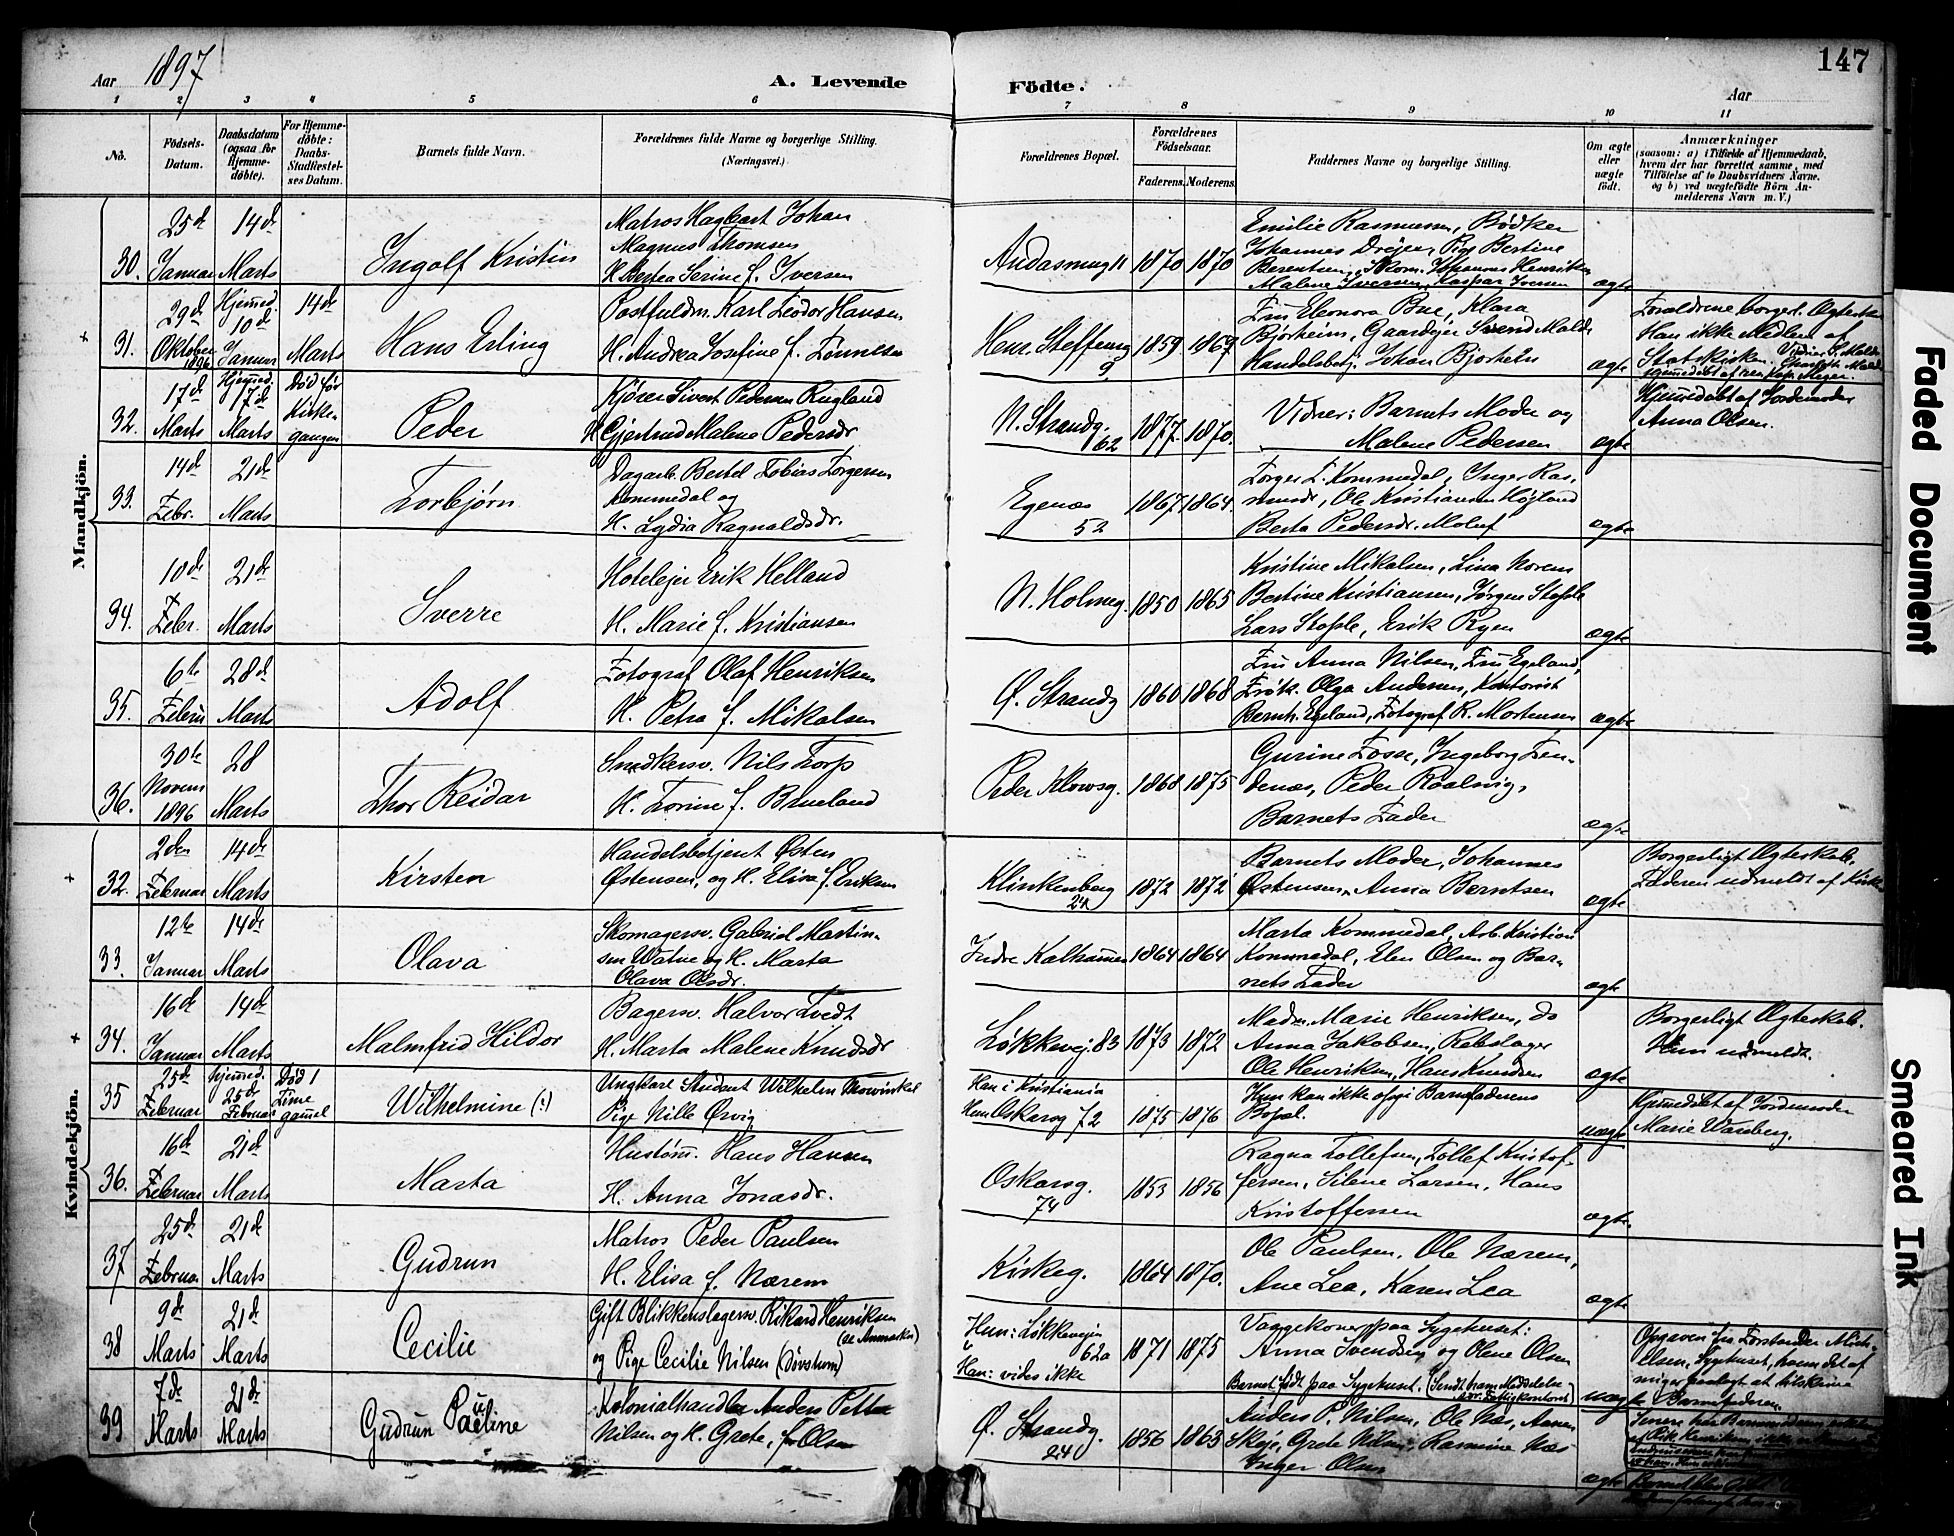 147
Aar 1897
A. Levende
Födte.
Aar
1 2 3 4 5 6 7 8 9 10 11
No.
Födsels-
Datum.
Daabsdatum
(ogsaa for
Hjemme-
döbte).
For Hjemme-
döbte:
Daabs-
Stadfæstel-
ses Datum.
Barnets fulde Navn.
Forældrenes fulde Navne og borgerlige Stilling.
(Næringsvei.)
Forældrenes Bopæl.
Forældrenes
Födselsaar.
Faderens. Moderens.
Faddernes Navne og borgerlige Stilling.
Om ægte
eller
uægte
födt.
Anmærkninger
(saasom: a) i Tilfælde af Hjemmedaab,
hvem der har forrettet samme, med
Tilföielse af to Daabsvidners Navne.
og b) ved uægtefödte Börn An-
melderens Navn m. V.)
Mandkjön.
30.
25de Januar
14de Marts
Ingolf Kristin
Matros Hagbart Johan
Magnus Thomsen
H. Bertea Serine f. Iversen
11
1870 1870
Emilie Rasmussen, Bødker
Johannes Pige Bertine
Malene Iversen, Kaspar Iversen
ægte
31.
29de Oktober 1896
Hjemmed. 10de Januar
14de Marts
Hans Erling
Postfuldm. Karl Teodor Hansen
H. Andrea Josefine f. Tønnesen
Henr. Steffensg
9
1859 1867
Fru Eleonora Bue, Klara
Bjorheim, Gaardejer Svend Malde
Handelsbetj. Johan Bjorheim
ægte
Forældrene borgerl. Ægteskab
Han ikke Medlem af
Statskirken.
32.
17de Marts
Hjemmed. 17de Marts
Død før
Kirke-
gangen
Peder
Kjører Sivert Pedersen Rugland
H. Gjertrud Malene Pedersdr
N. Strandg.
62
1877. 1870.
Vidner: Barnets Moder og
Malene Pedersen
ægte
Hjemmedøbt af Jordemoder
Anna Olsen.
33.
14de Febr.
21de Marts
Torbjørn
Dagarb. Bertel Tobias Torgersen
Kommedal og
H. Lydia Ragnaldsdr.
Egenæs
52
1867 1864.
Torger T. Kommedal, Inger Ras-
musdr, Ole Kristiansen Høyland
Berta Pedersdr. Moluf
ægte
34.
10de Febr.
21de Marts
Sverre
Hotelejer Erik Helland
H. Marie f. Kristiansen
N. Holmeg.
1850 1865
Kristine Mikalsen, Lina Norem
Bertine Kristiansen, Jørgen Stople
Lars Stople, Erik Ryen
ægte
35.
6te Febru
28de Marts
Adolf
Fotograf Olaf Henriksen
H. Petra f. Mikalsen
Ø. Strandg
1860 1868
Fru Anna Nilsen, Fru Egeland,
Frøk. Olga Andersen, Kontorist
Bernh. Egeland, Fotograf R. Mortensen
ægte
36.
30te Novem 1896
28 Marts
Thor Reidar
Snedkersv. Nils Torp
H. Torine f. Brueland
Peder Klowsg.
1868 1875
Gurine Fosse, Ingeborg Fen-
denæs, Peder Roalsvig,
Barnets Fader
ægte
Kvindekjön.
32.
2den Februar
14de Marts
Kirsten
Handelsbetjent Østen
Østensen, og H. Elisa f. Eriksen
Klinkenberg
24
1872 1872
Barnets Moder, Johannes
Østensen, Anna Berntsen
ægte
Borgerligt Ægteskab.
Faderen udmeldt af Kirken
33.
12te Januar
14de Marts
Olava
Skomagersv. Gabriel Martin-
sen Watne og H. Marta
Olava Olsdr.
Indre Kalhammer
1864 1864
Marta Kommedal, Arb. Kristian
Kommedal, Elen Olsen og Bar-
nets Fader
ægte
34.
16de Januar
14de Marts
Malmfrid Hildor
Bagersv. Halvor Tvedt
H. Marta Malene Knudsdr
Løkkevej. 83
1873 1872
Madm. Marie Henriksen, do
Anna Jakobsen, Rebslager
Ole Henriksen, Hans Knudsen
ægte
Borgerligt Ægteskab.
Hun udmeldt.
35
25de Februar
Hjemmed. 25de Februar
Død 1
Time
gammel
Wilhelmine (:)
Ungkarl Student Wilhelm Mowinkel
Pige Nille Ørvig
Han i Kristiania
Hun Oskarsg 72
1875 1876
Hun kan ikke opgi Barnefaderens
Bopæl.
uægte
Hjemmedøbt af Jordemoder
Marie Warberg.
36.
16de Februar
21de Marts
Marta
Hustøm. Hans Hansen
H. Anna Jonasdr.
Oskarsg.
74
1853 1856
Ragna Tollefsen, Tollef Kristof-
fersen, Silene Larsen, Hans
Kristoffersen
ægte
37
25de Februar
21de Marts
Gudrun
Matros Peder Paulsen
H. Elisa f. Nærem
Kirkeg.
1864 1870.
Ole Paulsen, Ole Nærem,
Ane Lea, Karen Lea
ægte
38
9de Marts
21de Marts
Cecilie
Gift Blikkenslagersv. Rikard Henriksen
(se Anmærkn)
og Pige Cecilie Nilsen (Døvstum)
Hun: Løkkevejen
62a
Han: vides ikke
1871 1875
Vaagekoner paa Sygehuset:
Anna Svendsen og Olene Olsen
Barnet født paa Sygehuset.
uægte
Opgaven fra Forstander Mick-
elsen, Sygehuset,
Barnefaderen
39
7de Marts
21de Marts
Gudrun Pauline
Kolonialhandler Anders Petter
Nilsen og H. Grete, f. Olsen
Ø. Strandg.
24
1856 1863
Anders P. Nilsen, Ole Næs, Aanen
Skeje, Grete Nilsen, Rasmine Næs
Inger Olsen
ægte
Faded Document
Smeared Ink